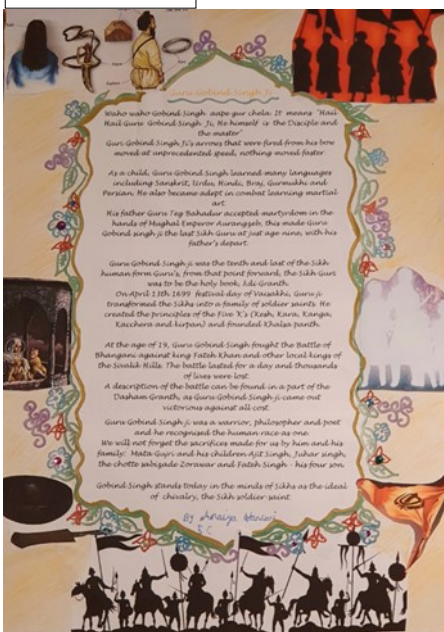 Guru Gobind Singh Ji
Waho waho Gobind Singh aape gur chela. It means "Hail
Hail Guru Gobind Singh Ji, He himself is the Disciple and
the master"
Guri Gobind Singh Ji's arrows that were fired from his bow
moved at unprecedented speed, nothing moved faster.
As a child, Guru Gobind Singh learned many languages
including Sanskrit, Urdu, Hindi, Braj, Gurmukhi and
Persian. He also became adept in combat learning martial
art.
His father Guru Teg Bahadur accepted martyrdom in the
hands of Mughal Emperor Aurangzeb, this made Guru
Gobind singh ji the last Sikh Guru at just age nine, with his
father's depart.
Guru Gobind Singh ji was the tenth and last of the Sikh
human form Guru's, from that point forward, the Sikh Guru
was to be the holy book, Adi Granth.
On April 13th 1699 festival day of Vaisakhi, Guru ji
transformed the Sikhs into a family of soldier saints. He
created the principles of the Five 'K's (Kesh, Kara, Kanga,
Kacchera and kirpan) and founded Khalsa panth.
At the age of 19, Guru Gobind Singh fought the Battle of
Bhangani against king Fateh Khan and other local kings of
the Sivalik Hills. The battle lasted for a day and thousands
of lives were lost.
A description of the battle can be found in a part of the
Dasham Granth, as Guru Gobind Singh ji came out
victorious against all cost.
Guru Gobind Singh ji was a warrior, philosopher and poet
and he recognised the human race as one.
We will not forget the sacrifices made for us by him and his
family: Mata Gujri and his children Ajit Singh, Juhar singh,
the chotte sabijade Zorawar and Fateh Singh - his four son.
Gobind Singh stands today in the minds of Sikhs as the ideal
of chivalry, the Sikh soldier-saint.
By
5C